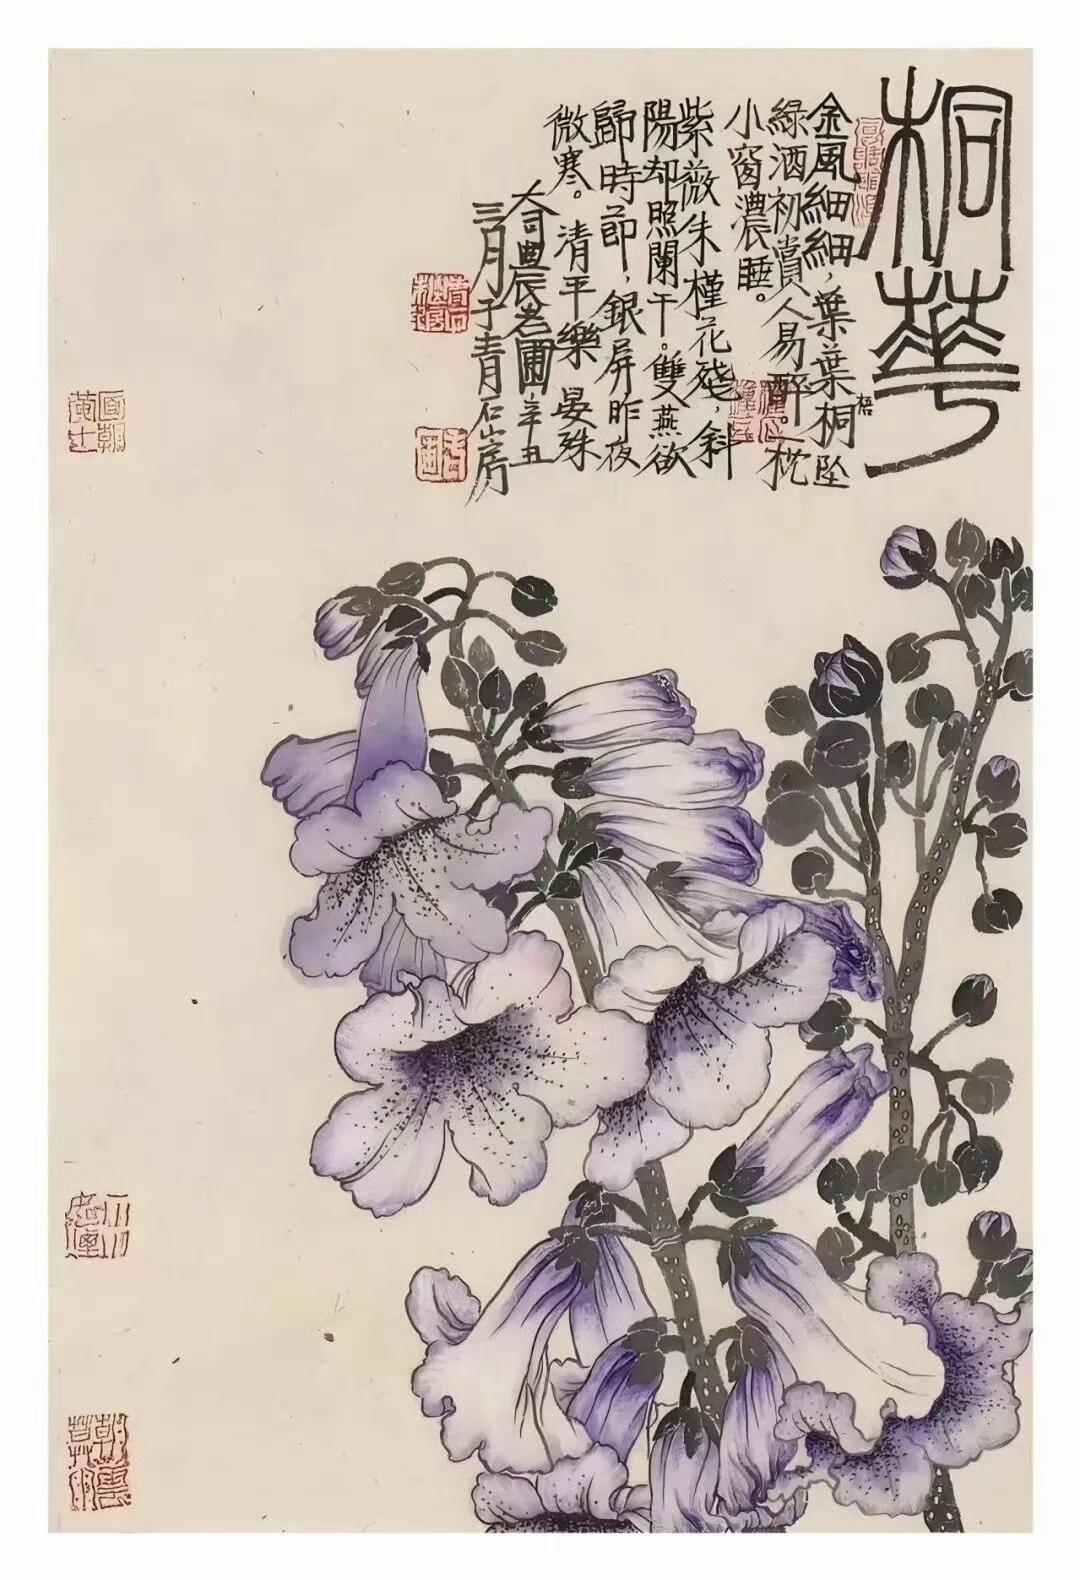 桐華
金風細細，葉葉桐墜
梧
綠酒初賞人易醉。一枕
小窗濃睡。
紫薇朱槿花殘，斜
陽却照闌干。雙燕欲
歸時節，銀屏昨夜
微寒。清平樂 晏殊
老圃辛丑
三月于青石山房
面朝黄土